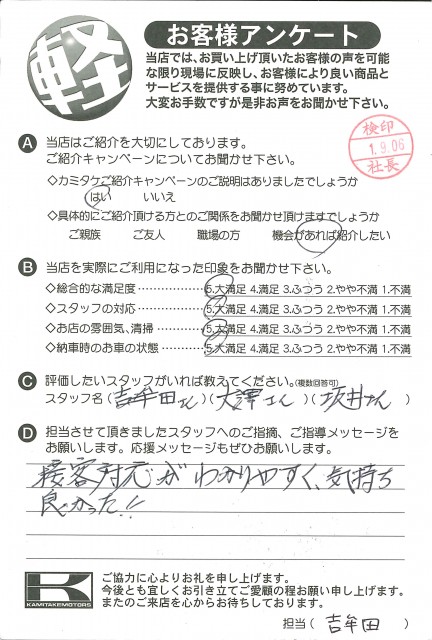 軽
お客様アンケート
当店では、お買い上げ頂いたお客様の声を可能
な限り現場に反映し、お客様により良い商品と
サービスを提供する事に努めています。
大変お手数ですが是非お声をお聞かせ下さい。
検印
1.9.06
社長
A 当店はご紹介を大切にしております。
ご紹介キャンペーンについてお聞かせ下さい。
◇カミタケご紹介キャンペーンのご説明はありましたでしょうか
はい いいえ
◇具体的にご紹介頂ける方とのご関係をお聞かせ頂けますでしょうか
ご親族 ご友人 職場の方 機会があれば紹介したい
B 当店を実際にご利用になった印象をお聞かせ下さい。
◇総合的な満足度……………5.大満足 4.満足 3.ふつう 2.やや不満 1.不満
◇スタッフの対応……………5.大満足 4.満足 3.ふつう 2.やや不満 1.不満
◇お店の雰囲気、清掃………5.大満足 4.満足 3.ふつう 2.やや不満 1.不満
◇納車時のお車の状態………5.大満足 4.満足 3.ふつう 2.やや不満 1.不満
C 評価したいスタッフがいれば教えてください。(複数回答可)
スタッフ名(吉牟田さん)(大澤さん)(坂井さん)
D 担当させて頂きましたスタッフへのご指摘、ご指導メッセージを
お願いします。応援メッセージもぜひお願いします。
接客対応がわかりやすく、気持ち
良かった!!
KAMITAKEMOTORS
ご協力に心よりお礼を申し上げます。
今後とも宜しくお引き立てご愛顧の程お願い申し上げます。
またのご来店を心からお待ちしております。
担当(吉牟田)